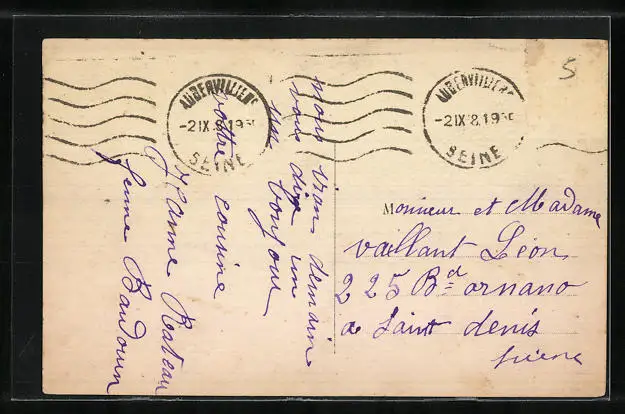 5
AUBERVILLIERS
-2 IX 8 19
SEINE
AUBERVILLIERS
-2 IX 8 19
SEINE
nous vian demain
vous dire un
bonjour
votre cousine
Jeanne Rateau
femme Baudouin
Monsieur et Madame
vaillant Léon
225 Bd ornano
a Saint denis